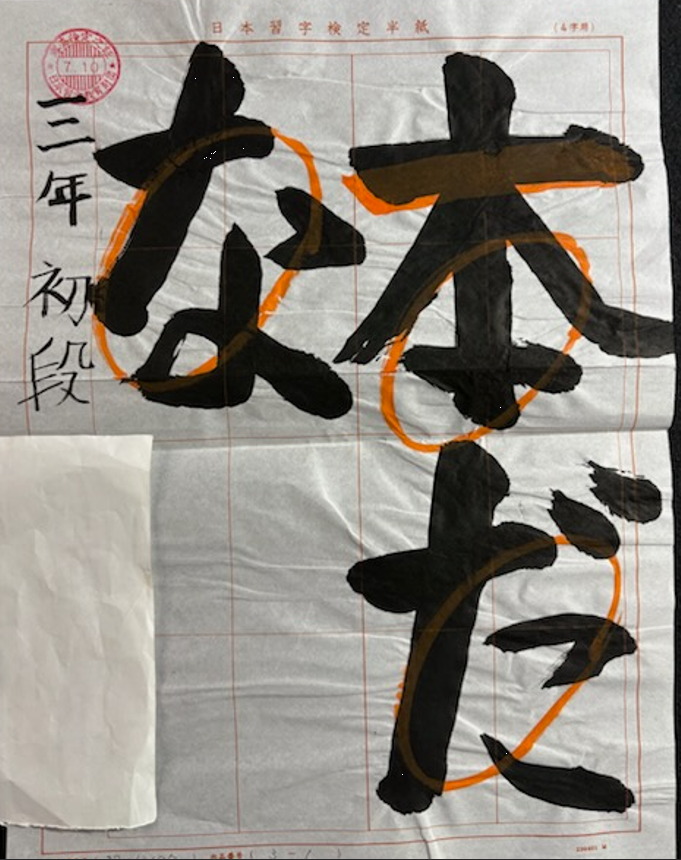 日本習字検定半紙
(4字用)
本だ
な
三年 初段
7.10